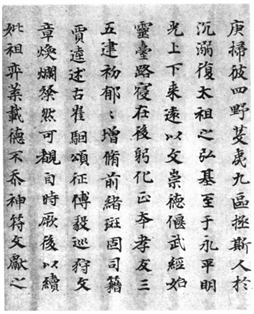 庚掃彼四野芟夷九區拯斯人於
沉溺復太祖之弘基至于永平明
光上下来遠以文崇德偃武經始
靈臺路寢在後躬化正本孝友三
五建初郁〻增脩前緒班固司籍
賈逵述古崔駰頌征傅毅巡狩文
章煥爛粲然可觀自時厥後以續
妣祖弈葉載德不忝神符文獻之